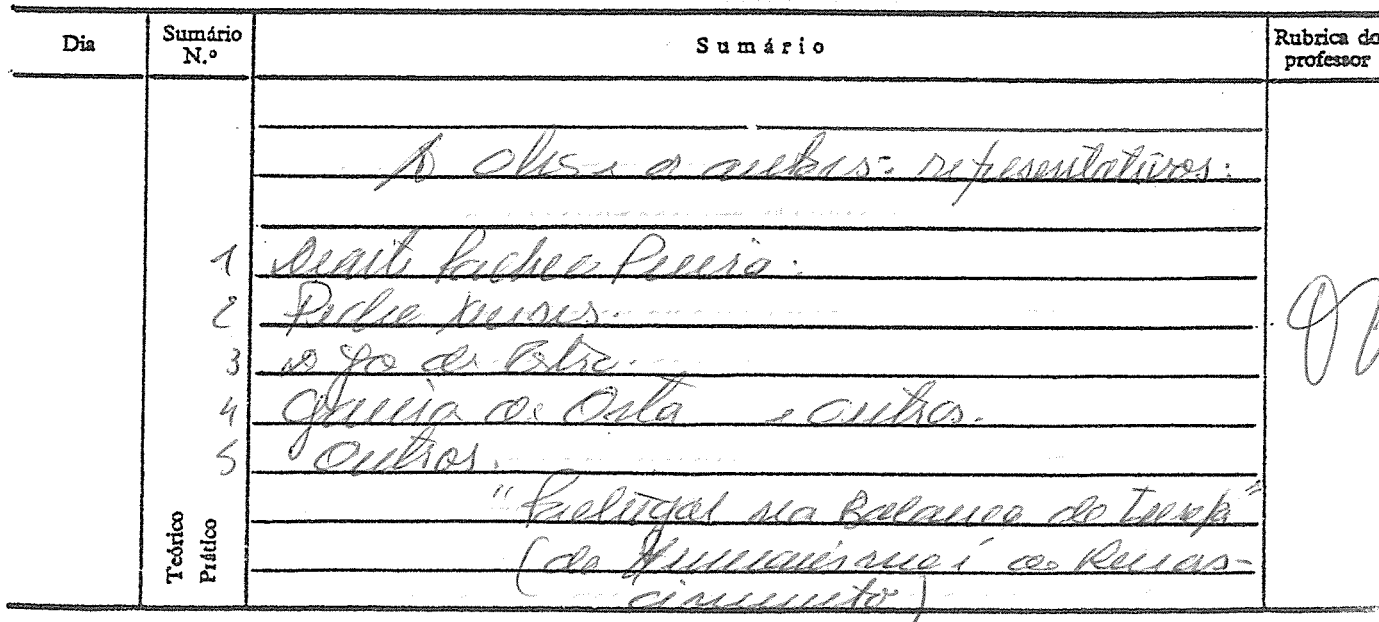 Dia
Sumário N.º
Sumário
Rubrica do professor
A obse e autores representativos:
1 Duarte Pacheco Pereira.
2 Pedro Nunes.
3 D. Jo de Castro.
4 Garcia de Orta e outros.
5 Outros.
"Portugal na Balança do tempo"
(do Humanismo i ao Renas-
cimento)
Teórico
Prático